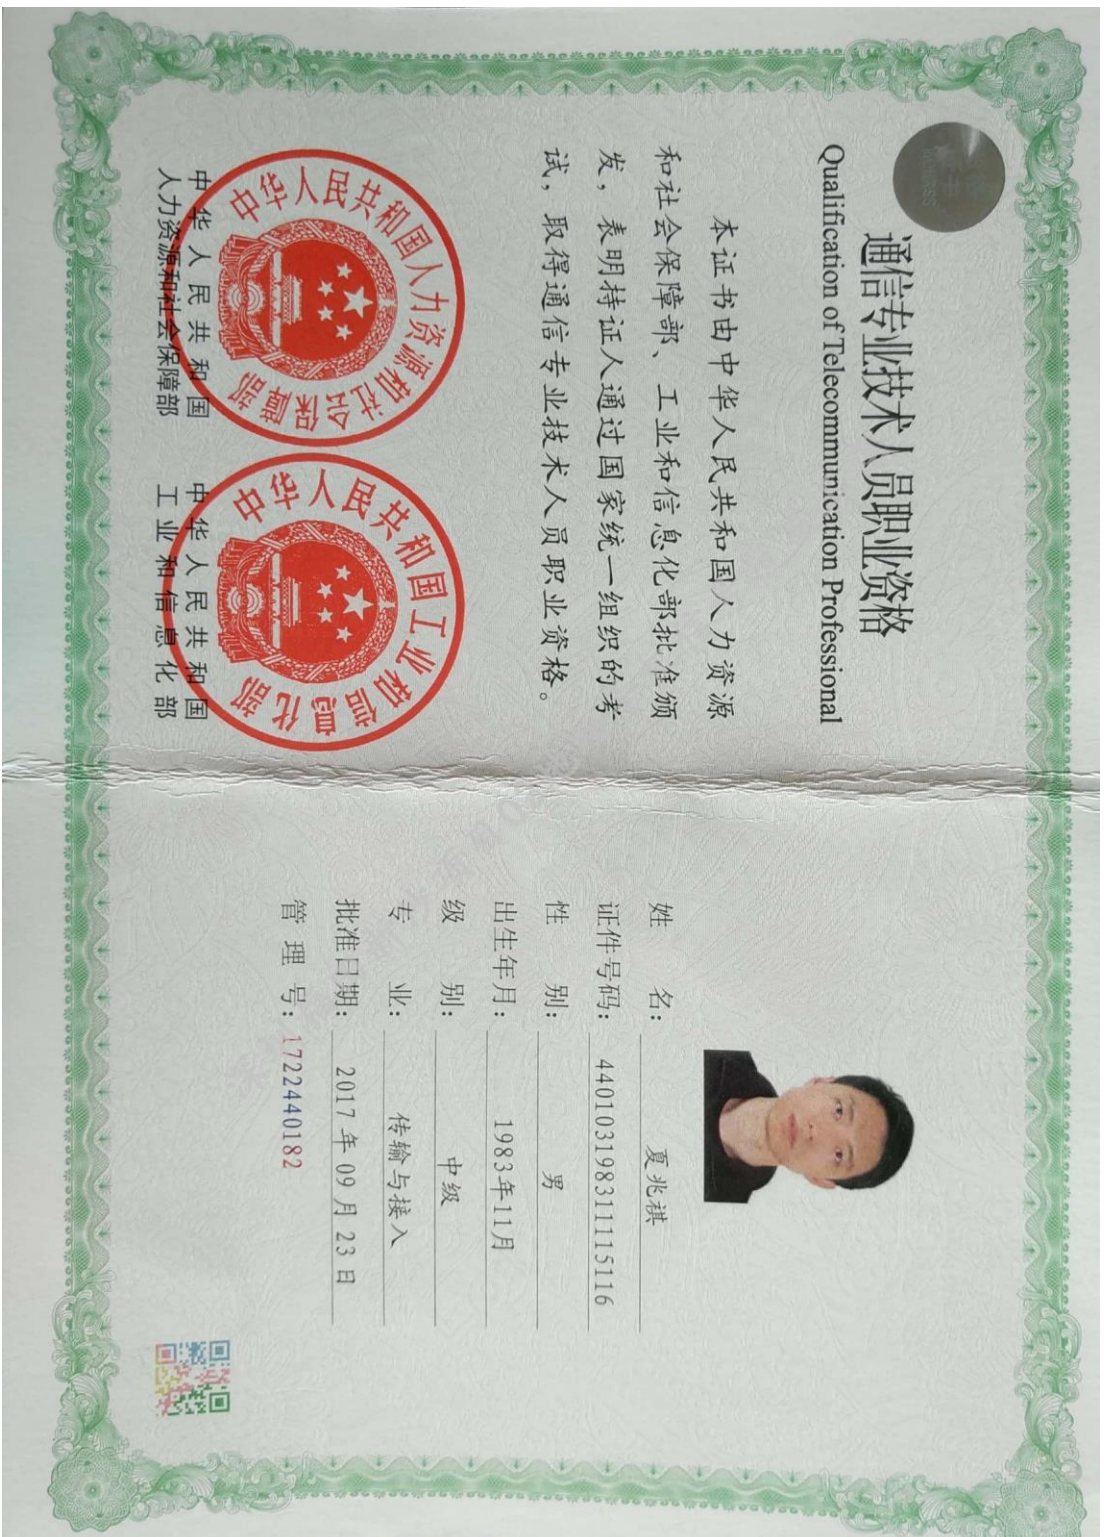 通信专业技术人员职业资格
Qualification of Telecommunication Professional
本证书由中华人民共和国人力资源
和社会保障部、工业和信息化部批准颁
发，表明持证人通过国家统一组织的考
试，取得通信专业技术人员职业资格。
中华人民共和国人力资源和社会保障部
中华人民共和国
人力资源和社会保障部
中华人民共和国工业和信息化部
中华人民共和国
工业和信息化部
姓 名： 夏兆祺
证件号码： 440103198311115116
性 别： 男
出生年月： 1983年11月
级 别： 中级
专 业： 传输与接入
批准日期： 2017年09月23日
管 理 号： 1722440182